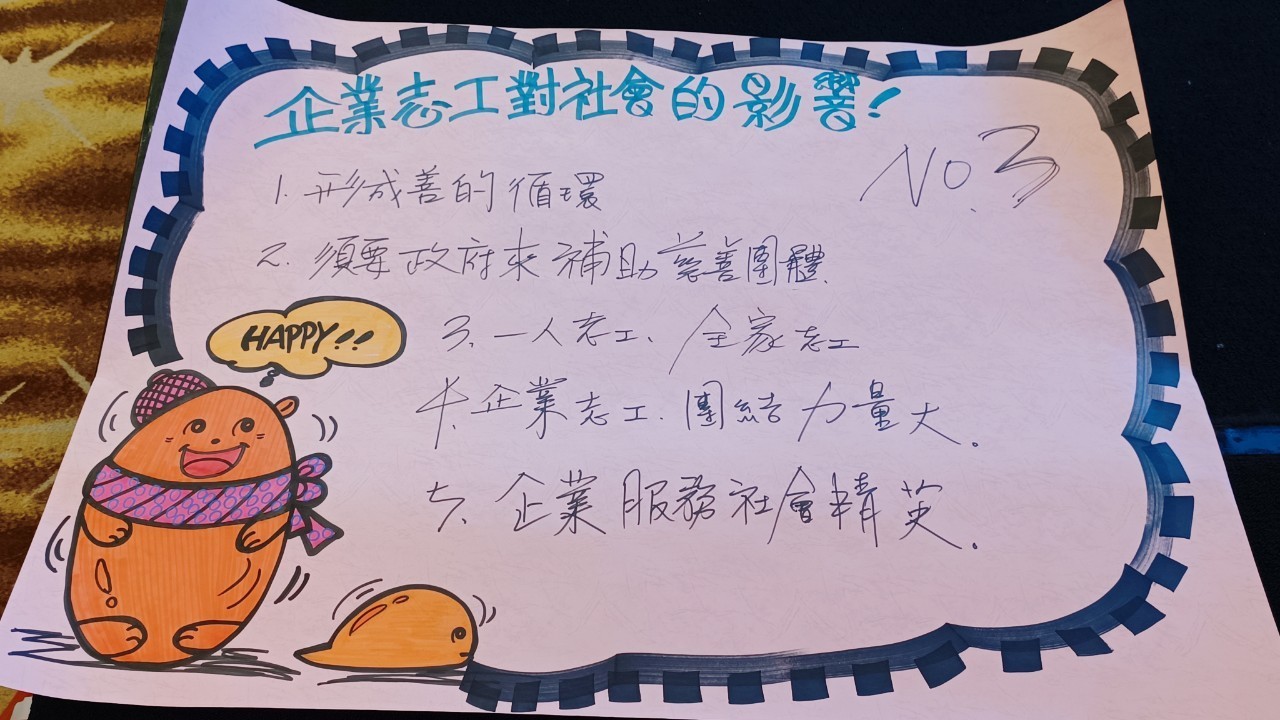 企業志工對社會的影響!
No.3
1. 形成善的循環
2. 須要政府來補助慈善團體.
3. 一人志工、全家志工
4. 企業志工. 團結力量大。
5. 企業服務社會精英。
HAPPY!!